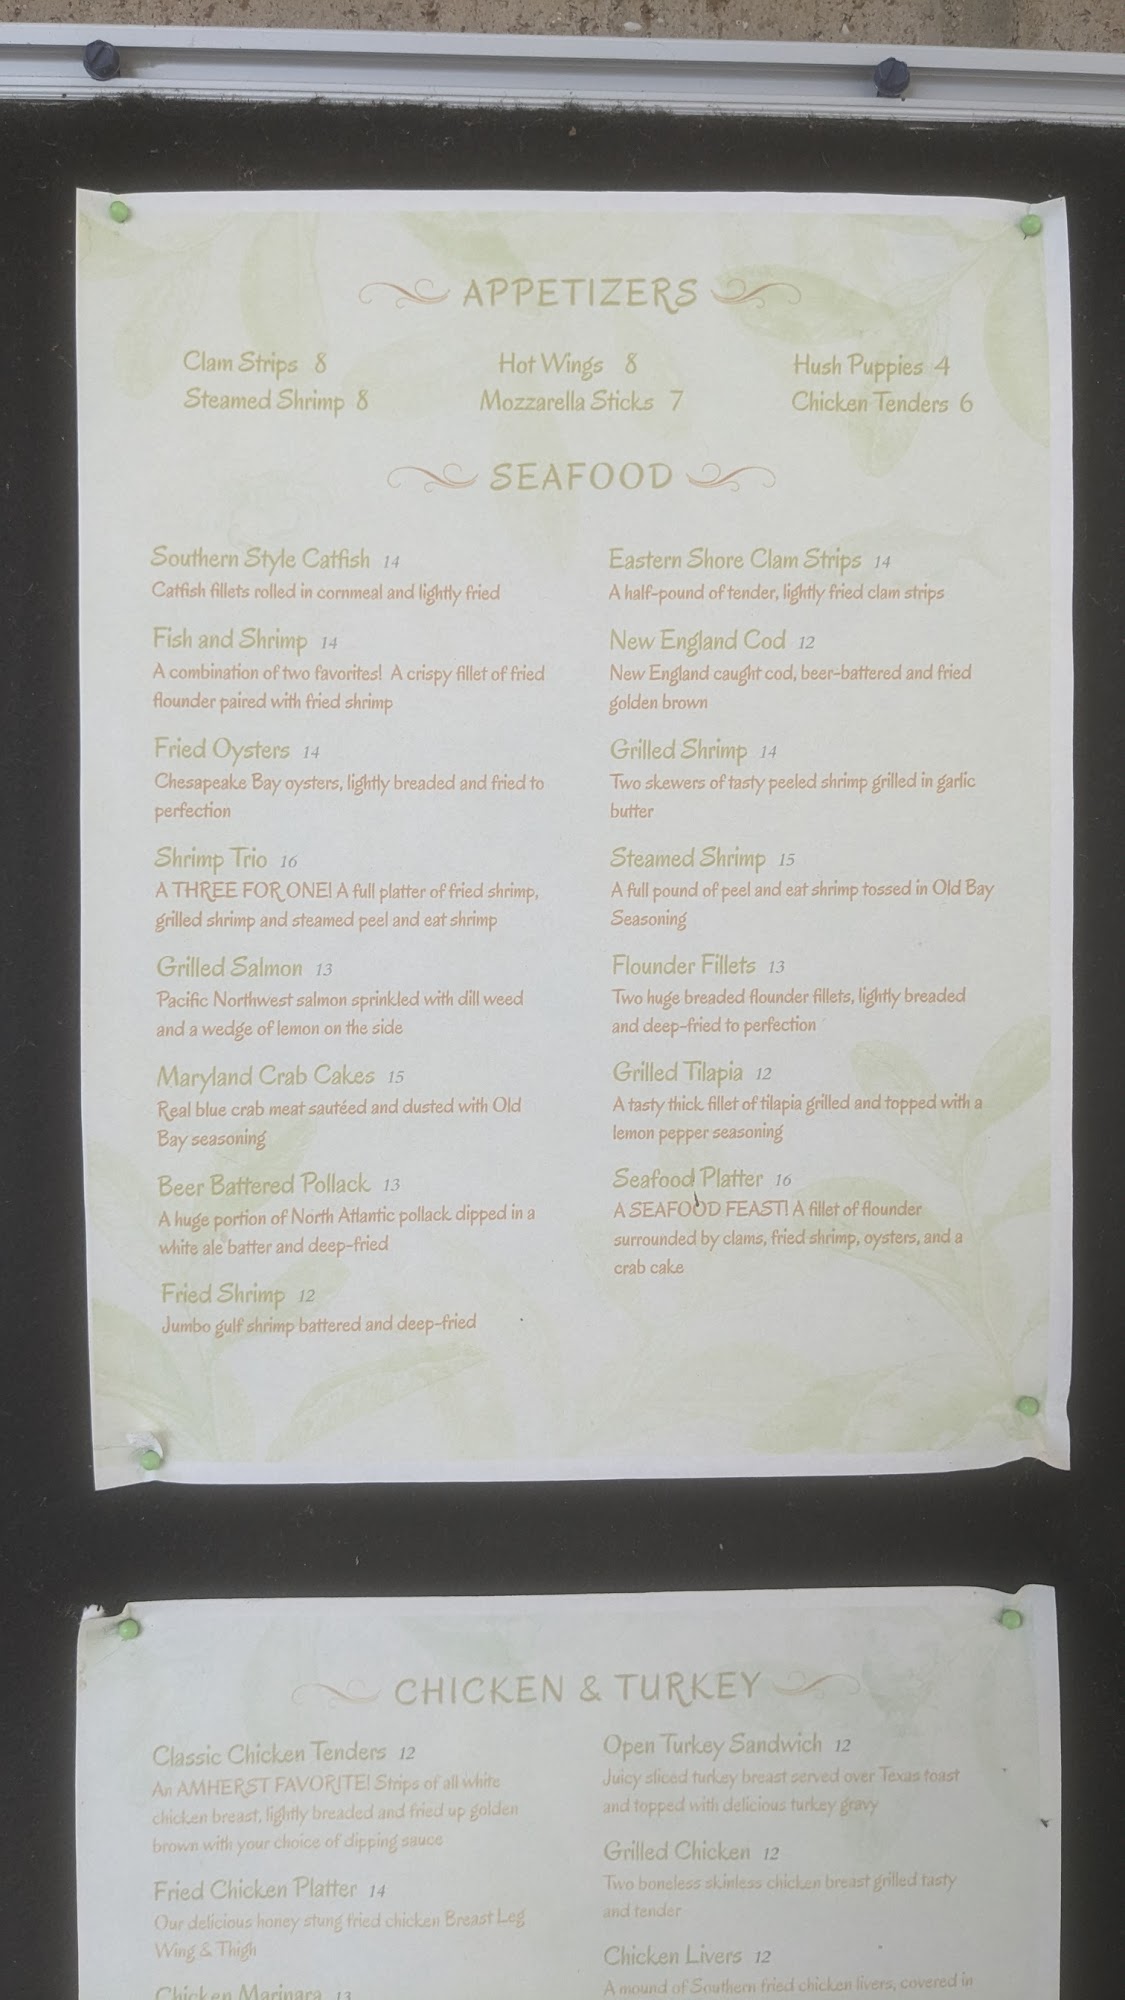 APPETIZERS
Clam Strips 8
Hot Wings 8
Hush Puppies 4
Steamed Shrimp 8
Mozzarella Sticks 7
Chicken Tenders 6
SEAFOOD
Southern Style Catfish 14
Catfish fillets rolled in cornmeal and lightly fried
Fish and Shrimp 14
A combination of two favorites! A crispy fillet of fried
flounder paired with fried shrimp
Fried Oysters 14
Chesapeake Bay oysters, lightly breaded and fried to
perfection
Shrimp Trio 16
A THREE FOR ONE! A full platter of fried shrimp,
grilled shrimp and steamed peel and eat shrimp
Grilled Salmon 13
Pacific Northwest salmon sprinkled with dill weed
and a wedge of lemon on the side
Maryland Crab Cakes 15
Real blue crab meat sautéed and dusted with Old
Bay seasoning
Beer Battered Pollack 13
A huge portion of North Atlantic pollack dipped in a
white ale batter and deep-fried
Fried Shrimp 12
Jumbo gulf shrimp battered and deep-fried
Eastern Shore Clam Strips 14
A half-pound of tender, lightly fried clam strips
New England Cod 12
New England caught cod, beer-battered and fried
golden brown
Grilled Shrimp 14
Two skewers of tasty peeled shrimp grilled in garlic
butter
Steamed Shrimp 15
A full pound of peel and eat shrimp tossed in Old Bay
Seasoning
Flounder Fillets 13
Two huge breaded flounder fillets, lightly breaded
and deep-fried to perfection
Grilled Tilapia 12
A tasty thick fillet of tilapia grilled and topped with a
lemon pepper seasoning
Seafood Platter 16
A SEAFOOD FEAST! A fillet of flounder
surrounded by clams, fried shrimp, oysters, and a
crab cake
CHICKEN & TURKEY
Classic Chicken Tenders 12
An AMHERST FAVORITE! Strips of all white
chicken breast, lightly breaded and fried up golden
brown with your choice of dipping sauce
Fried Chicken Platter 14
Our delicious honey stung fried chicken Breast Leg
Wing & Thigh
Chicken Marinara 13
Open Turkey Sandwich 12
Juicy sliced turkey breast served over Texas toast
and topped with delicious turkey gravy
Grilled Chicken 12
Two boneless skinless chicken breast grilled tasty
and tender
Chicken Livers 12
A mound of Southern fried chicken livers, covered in